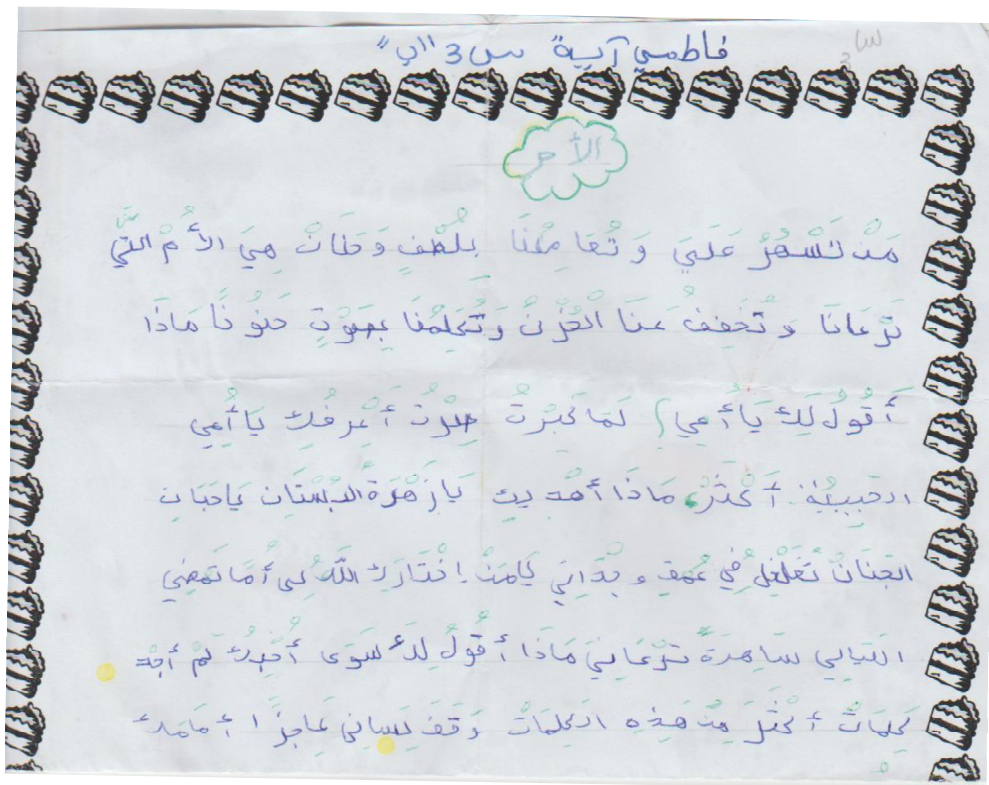 فاطمي آية س 3 "ب"
س 3
الأم
مَنْ تَسْهَرُ عَلَيَ وَ تُعَامِلُنَا بِلُطْفٍ وَ حَنَانْ هِيَ الأُمْ التَّي
تَرْعَانَا وَ تُخَفِفُ عَنَا الْحُزْنْ وَ تُكَلِمُنَا بِصَوْتٍ حَنوُنًا مَاذَا
أَقُولُ لَكِ يَا أُمِي) لَمَا كَبَرْتُ صِرْتُ أَعْرِفُكِ يَا أُمِي
الحَبِيبَةْ أَكْثَرْ مَاذَا أُهْدِيكِ يَا زَهْرَةَ البُسْتَانِ يَا حَبَانِ
الحَنَانْ تَغَلْغَلَ فِي عُمْقِ وِجْدَانِي يَامَنْ إِخْتَارَكِ اللَّهُ لِي أُمًا تَمْضِي
اللَيَالِي سَاهِرَةً تَرْعَانِي مَاذَا أَقُولُ لَكِ سِوَى أُحِبُكِ لَمْ أَجِدْ
كَلِمَاتْ أَكْثَرَ مِنْ هَذِهِ الكَلِمَاتْ وَقَفَ لِسَانِي عَاجِزًا أَمَامَكِ